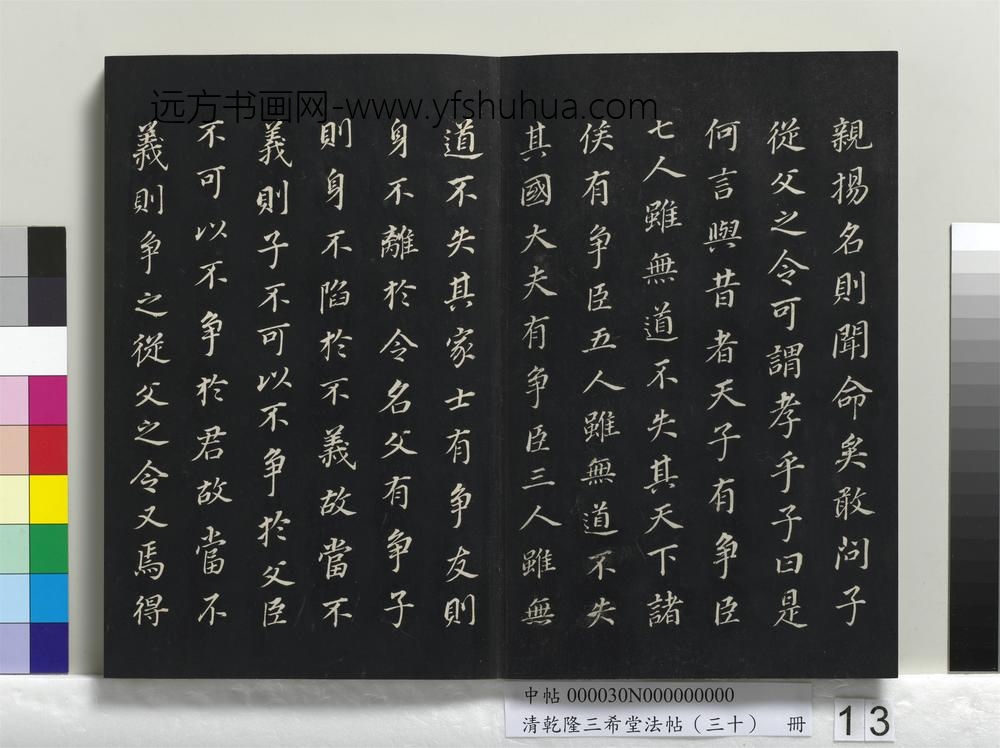 远方书画网-www.yfshuhua.com
親揚名則聞命矣敢問子
從父之令可謂孝乎子曰是
何言與昔者天子有争臣
七人雖無道不失其天下諸
侯有争臣五人雖無道不失
其國大夫有争臣三人雖無
道不失其家士有争友則
身不離於令名父有争子
則身不陷於不義故當不
義則子不可以不争於父臣
不可以不争於君故當不
義則争之從父之令又焉得
中帖 000030N000000000
清乾隆三希堂法帖（三十） 冊
13